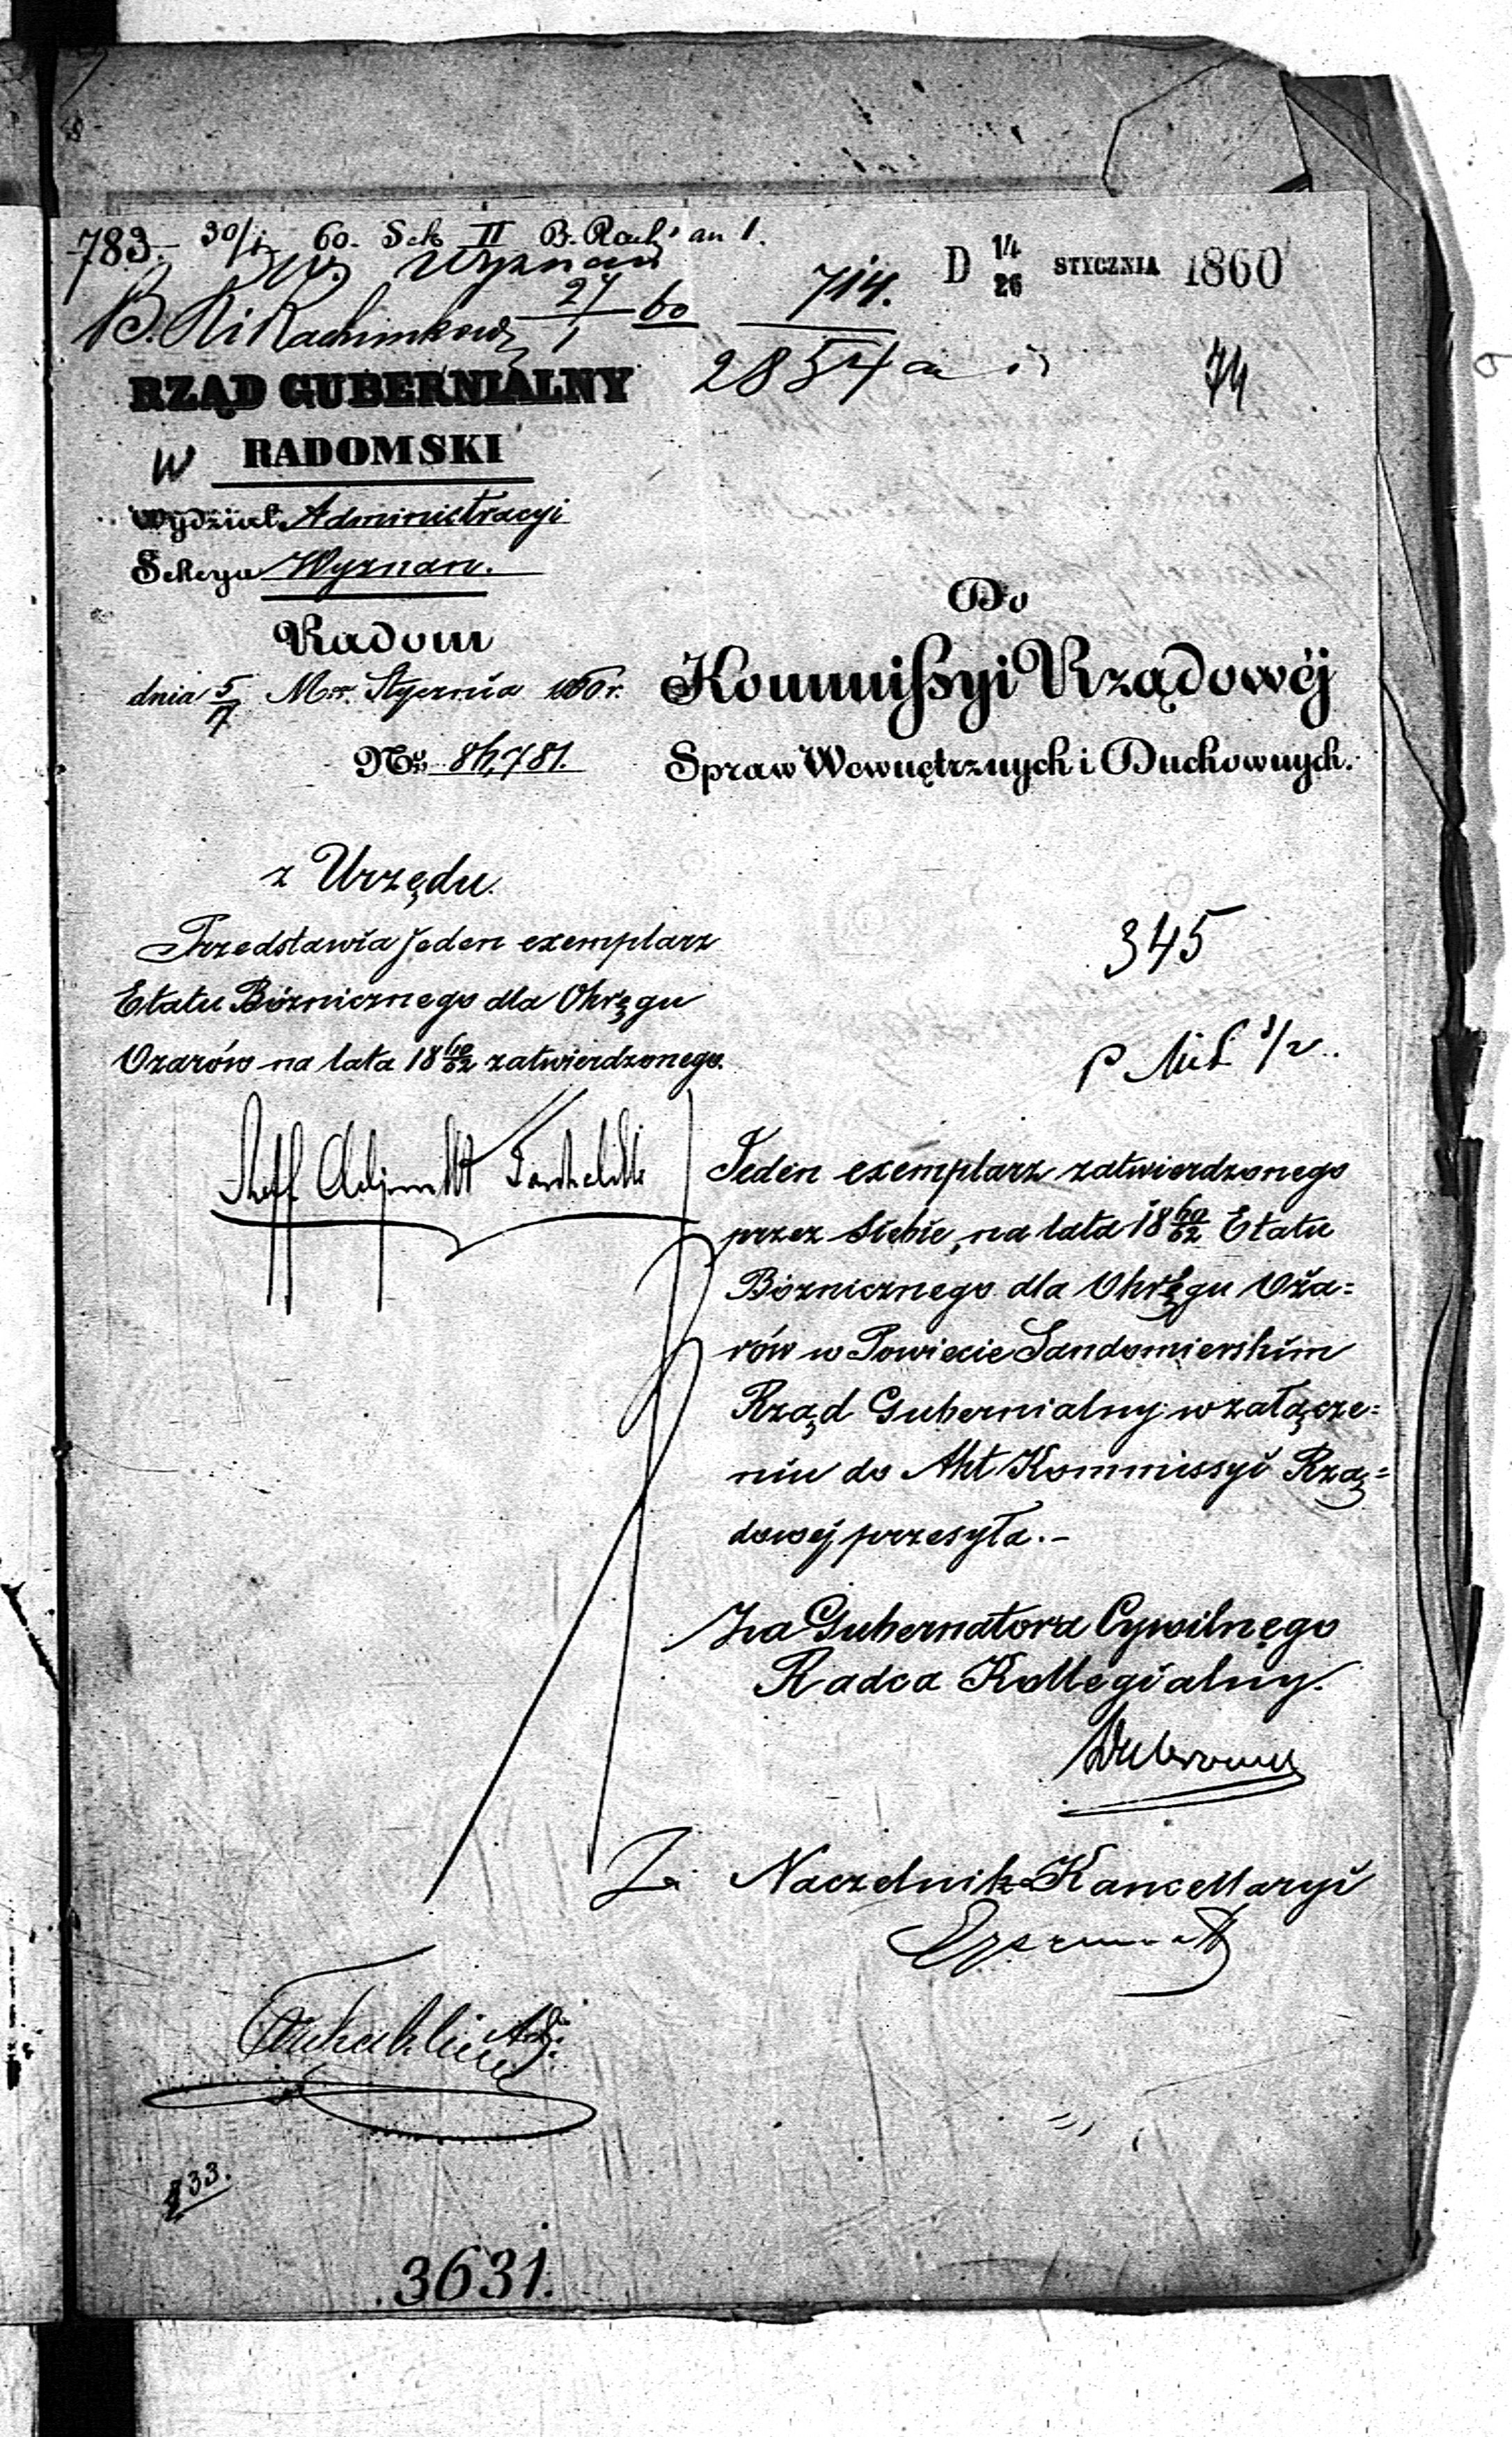 783. 30/1 60. Sek II B. Rach. an 1.
D 14/26 STYCZNIA 1860
714.
27/1 60
2854
74
RZĄD GUBERNIALNY
W RADOMSKI
Wydział Administracyi
Sekcya Wyznań.
Radom
dnia 5/17 M. Stycznia 1860 r.
No 86,781.
Do
Kommissyi Rządowéj
Spraw Wewnętrznych i Duchownych.
z Urzędu.
Przedstawia jeden exemplarz
Etatu Bóżnicznego dla Okręgu
Ozarów na lata 18 60/62 zatwierdzonego.
345
Jeden exemplarz zatwierdzonego
przez siebie, na lata 18 60/62 Etatu
Bóżnicznego dla Okręgu Oża=
rów w Powiecie Sandomierskim
Rząd Gubernialny w załącze=
niu do Akt Kommissyi Rzą=
dowéj przesyła.-
Za Gubernatora Cywilnego
Radca Kollegialny.
Za Naczelnika Kancellaryi
833.
3631.